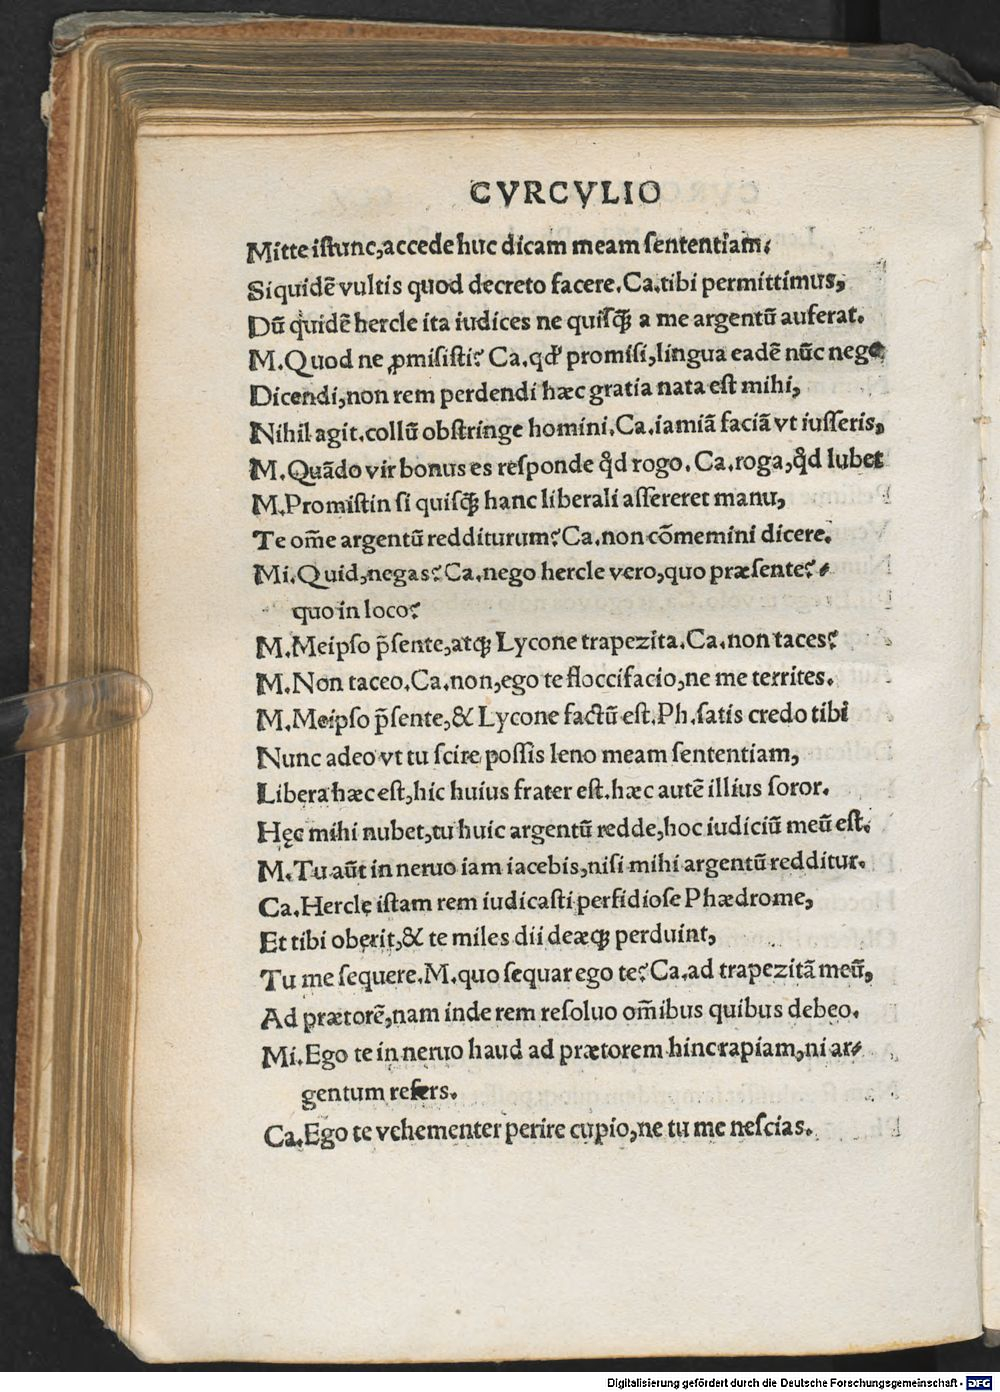 CVRCVLIO
Mitte iſtunc,accede huc dicam meam ſententiam.
Siquidẽ vultis quod decreto facere.Ca.tibi permittimus,
Dũ quidẽ hercle ita iudices ne quiſꝗ̃ a me argentũ auferat.
M.Quod ne ꝓmiſiſti? Ca.qđ promiſi,lingua eadẽ nũc nego
Dicendi,non rem perdendi hæc gratia nata eſt mihi,
Nihil agit.collũ obſtringe homini.Ca.iamiã faciã vt iuſſeris,
M.Quãdo vir bonus es reſponde qd rogo.Ca.roga,qd lubet
M.Promiſtin ſi quiſꝗ̃ hanc liberali aſſereret manu,
Te om̃e argentũ redditurum?Ca.non cõmemini dicere.
Mi.Quid,negas?Ca.nego hercle vero,quo præſente?
quo in loco?
M.Meipſo p̃ſente,atqꝫ Lycone trapezita.Ca.non taces?
M.Non taceo.Ca.non,ego te floccifacio,ne me territes.
M.Meipſo p̃ſente,& Lycone factũ eſt.Ph.ſatis credo tibi
Nunc adeo vt tu ſcire poſſis leno meam ſententiam,
Libera hæc eſt,hic huius frater eſt.hæc autẽ illius ſoror.
Hęc mihi nubet,tu huic argentũ redde,hoc iudiciũ meũ eſt.
M.Tu aũt in neruo iam iacebis,niſi mihi argentũ redditur.
Ca.Hercle iſtam rem iudicaſti perfidioſe Phædrome,
Et tibi oberit,& te miles dii deæqꝫ perduint,
Tu me ſequere.M.quo ſequar ego te?Ca.ad trapezitã meũ,
Ad prætorẽ,nam inde rem reſoluo om̃ibus quibus debeo.
Mi.Ego te in neruo haud ad prætorem hinc rapiam,ni ar⸗
gentum refers.
Ca.Ego te vehementer perire cupio,ne tu me neſcias.
Digitalisierung gefördert durch die Deutsche Forschungsgemeinschaft - DFG